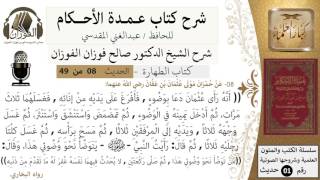 شرح كتاب عمدة الأحكام
للحافظ / عبدالغني المقدسي
شرح الشيخ الدكتور صالح فوزان الفوزان
كتاب الطهارة - الحديث 08 من 49
08- عَنْ حُمْرَانَ مَوْلَى عُثْمَانَ بْنِ عَفَّانَ رضي الله عنهما:
(أَنَّهُ رَأَى عُثْمَانَ دَعَا بِوَضُوءٍ، فَأَفْرَغَ عَلَى يَدَيْهِ مِنْ إنَائِهِ، فَغَسَلَهُمَا ثَلاثَ
مَرَّاتٍ، ثُمَّ أَدْخَلَ يَمِينَهُ فِي الْوَضُوءِ، ثُمَّ تَمَضْمَضَ وَاسْتَنْشَقَ وَاسْتَنْثَرَ، ثُمَّ غَسَلَ
وَجْهَهُ ثَلاثًا، وَيَدَيْهِ إلَى الْمِرْفَقَيْنِ ثَلاثًا، ثُمَّ مَسَحَ بِرَأْسِهِ، ثُمَّ غَسَلَ كِلْتَا
رِجْلَيْهِ ثَلاثًا، ثُمَّ قَالَ: رَأَيْتُ النَّبِيَّ ﷺ يَتَوَضَّأُ نَحْوَ وُضُوئِي هَذَا، وَقَالَ:
رواه البخاري.
سلسلة الكتب والمتون
العلمية وشروحها الصوتية
كتاب رقم 01
الفوزان